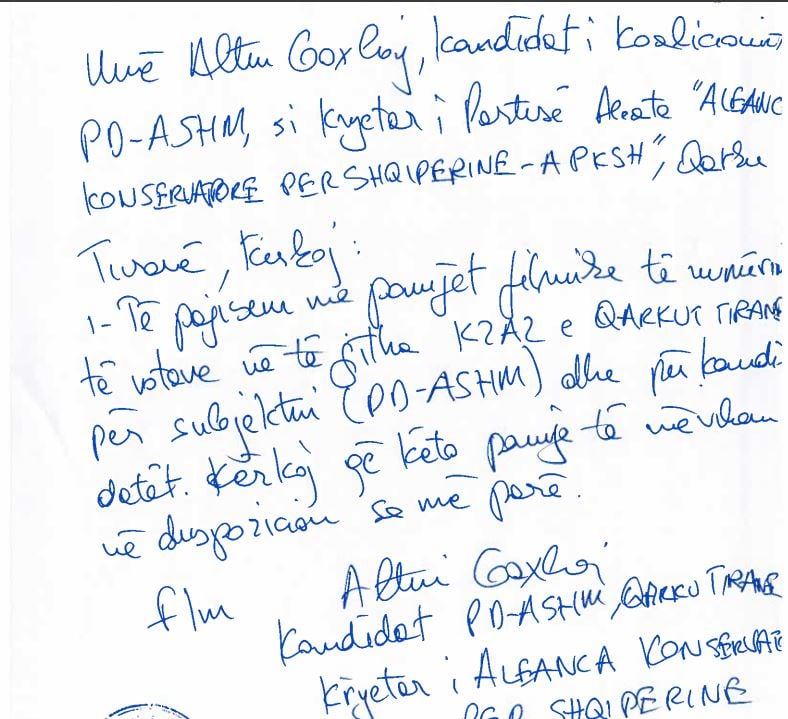 Unë Altin Goxhaj, kandidat i Koalicionin,
PD-ASHM, si Kryetar i Partisë Aleate "ALEANC
KONSERVATORE PER SHQIPERINE-APKSH", Qarku
Tiranë, Kërkoj:
1- Të pajisem me pamjet filmike të numërim
të votave në të gjitha KZAZ e QARKUT TIRANE
për subjektin (PD-ASHM) dhe për kandi
datët. Kërkoj që këto pamje të më vihen
në dispozicion sa më parë.
flm Altin Goxhaj
Kandidat PD-ASHM, QARKU TIRANE
Kryetar i ALEANCA KONSERVAT
PER SHQIPERINE